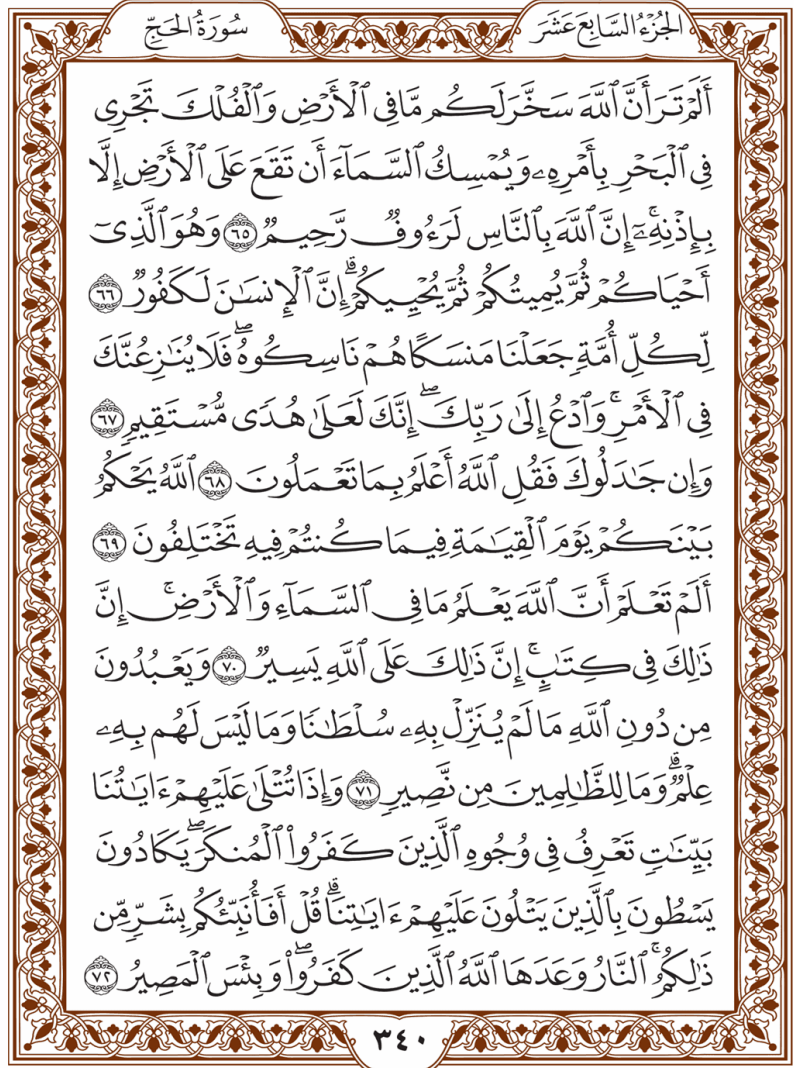 الجُزْءُ السَّابِعَ عَشَرَ
سُورَةُ الحَجِّ
أَلَمۡ تَرَ أَنَّ ٱللَّهَ سَخَّرَ لَكُم مَّا فِي ٱلۡأَرۡضِ وَٱلۡفُلۡكَ تَجۡرِي
فِي ٱلۡبَحۡرِ بِأَمۡرِهِۦ وَيُمۡسِكُ ٱلسَّمَآءَ أَن تَقَعَ عَلَى ٱلۡأَرۡضِ إِلَّا
بِإِذۡنِهِۦٓۚ إِنَّ ٱللَّهَ بِٱلنَّاسِ لَرَءُوفٞ رَّحِيمٞ ٦٥ وَهُوَ ٱلَّذِيٓ
أَحۡيَاكُمۡ ثُمَّ يُمِيتُكُمۡ ثُمَّ يُحۡيِيكُمۡۗ إِنَّ ٱلۡإِنسَٰنَ لَكَفُورٞ ٦٦
لِّكُلِّ أُمَّةٖ جَعَلۡنَا مَنسَكًا هُمۡ نَاسِكُوهُۖ فَلَا يُنَٰزِعُنَّكَ
فِي ٱلۡأَمۡرِۚ وَٱدۡعُ إِلَىٰ رَبِّكَۖ إِنَّكَ لَعَلَىٰ هُدٗى مُّسۡتَقِيمٖ ٦٧
وَإِن جَٰدَلُوكَ فَقُلِ ٱللَّهُ أَعۡلَمُ بِمَا تَعۡمَلُونَ ٦٨ ٱللَّهُ يَحۡكُمُ
بَيۡنَكُمۡ يَوۡمَ ٱلۡقِيَٰمَةِ فِيمَا كُنتُمۡ فِيهِ تَخۡتَلِفُونَ ٦٩
أَلَمۡ تَعۡلَمۡ أَنَّ ٱللَّهَ يَعۡلَمُ مَا فِي ٱلسَّمَآءِ وَٱلۡأَرۡضِۚ إِنَّ
ذَٰلِكَ فِي كِتَٰبٍۚ إِنَّ ذَٰلِكَ عَلَى ٱللَّهِ يَسِيرٞ ٧٠ وَيَعۡبُدُونَ
مِن دُونِ ٱللَّهِ مَا لَمۡ يُنَزِّلۡ بِهِۦ سُلۡطَٰنٗا وَمَا لَيۡسَ لَهُم بِهِۦ
عِلۡمٞۗ وَمَا لِلظَّٰلِمِينَ مِن نَّصِيرٖ ٧١ وَإِذَا تُتۡلَىٰ عَلَيۡهِمۡ ءَايَٰتُنَا
بَيِّنَٰتٖ تَعۡرِفُ فِي وُجُوهِ ٱلَّذِينَ كَفَرُواْ ٱلۡمُنكَرَۖ يَكَادُونَ
يَسۡطُونَ بِٱلَّذِينَ يَتۡلُونَ عَلَيۡهِمۡ ءَايَٰتِنَاۗ قُلۡ أَفَأُنَبِّئُكُم بِشَرّٖ مِّن
ذَٰلِكُمُۚ ٱلنَّارُ وَعَدَهَا ٱللَّهُ ٱلَّذِينَ كَفَرُواْۖ وَبِئۡسَ ٱلۡمَصِيرُ ٧٢
٣٤٠